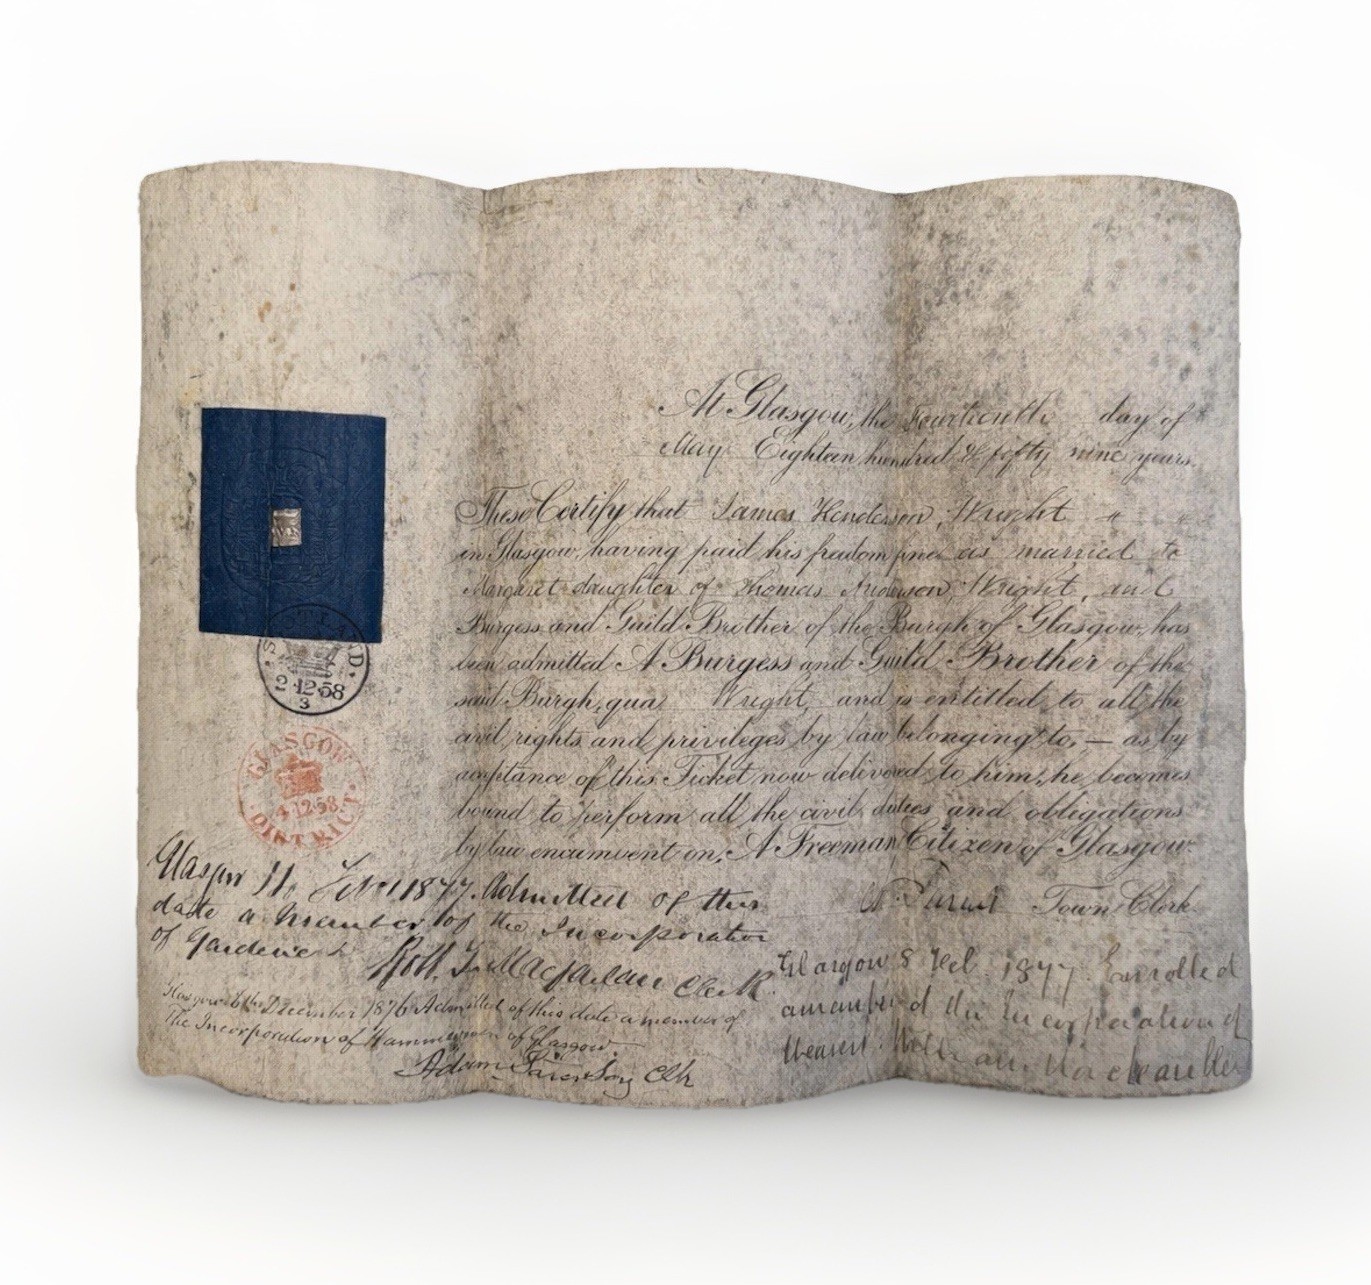 At Glasgow, the Fourteenth day of
May Eighteen hundred & fifty nine years.
These Certify that James Henderson, Wright
in Glasgow, having paid his freedom fine as married to
Margaret daughter of Thomas Anderson, Wright, and
Burgess and Guild Brother of the Burgh of Glasgow, has
been admitted A Burgess and Guild Brother of the
said Burgh, qua Wright, and is entitled to all the
civil rights and privileges by law belonging to, — as by
acceptance of this Ticket now delivered to him, he becomes
bound to perform all the civil duties and obligations
by law encumbent on, A Freeman Citizen of Glasgow
Town Clerk.
SCOTLAND
2·12·58
3
GLASGOW
4·12·58
DISTRICT
Glasgow 11 1877. Admitted of this
date a member of the Incorporation
of Gardeners
Robt. T. Macfarlan Clerk.
Glasgow 8 the December 1876 Admitted of this date a member of
The Incorporation of Hammermen of Glasgow
Adam Paterson, Clk
Glasgow 8 Feb. 1877. Enrolled
a member of the Incorporation of